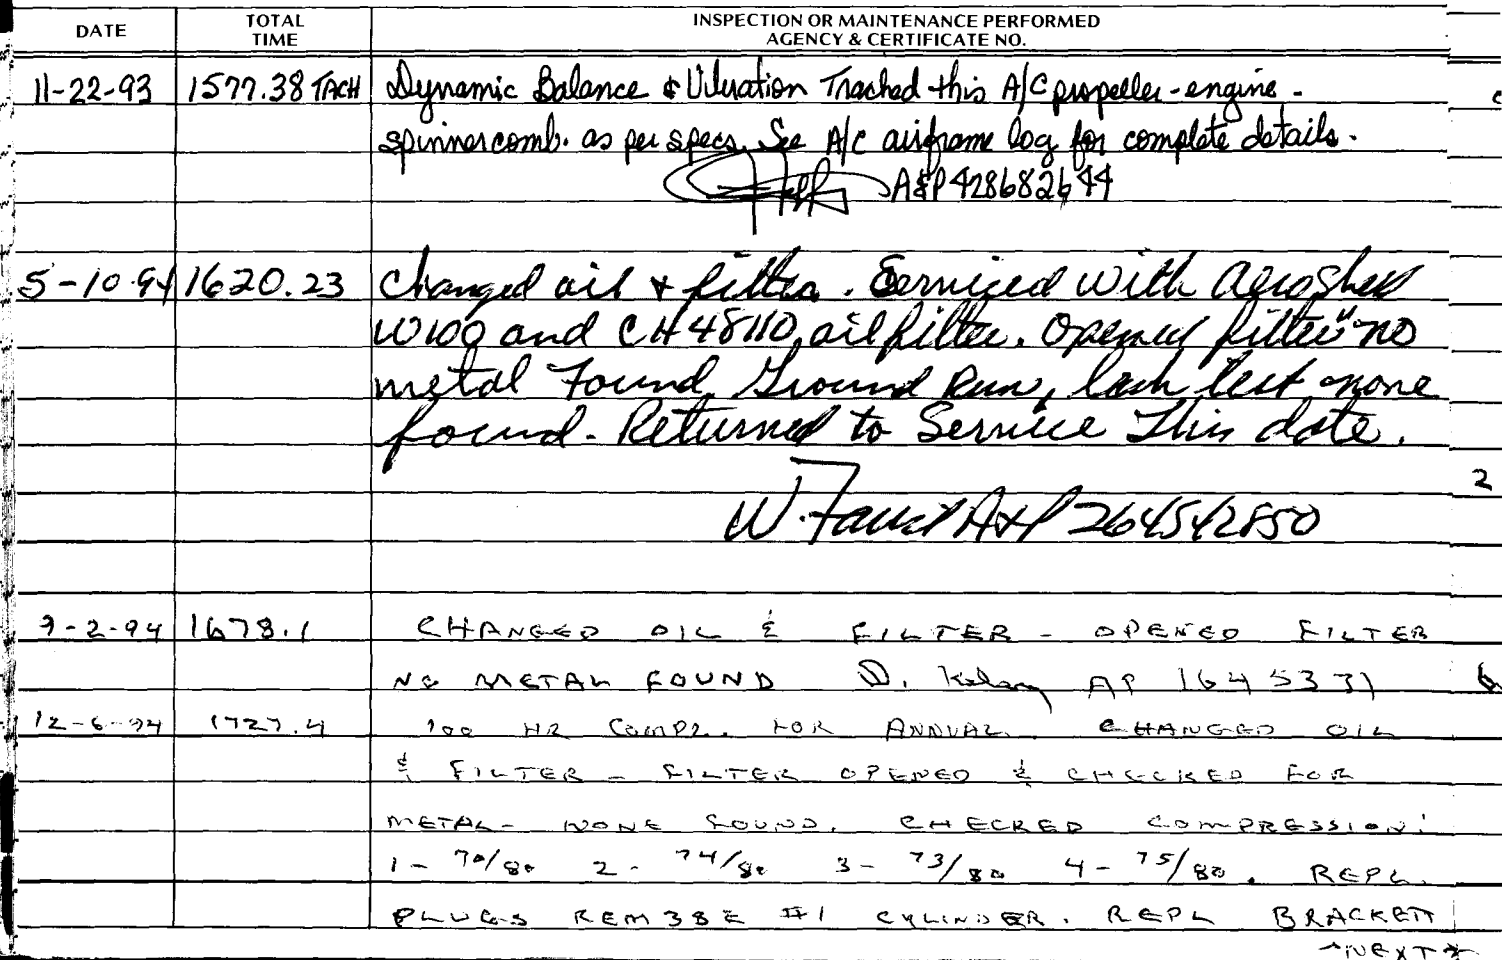 DATE TOTAL TIME INSPECTION OR MAINTENANCE PERFORMED AGENCY & CERTIFICATE NO.
11-22-93 1577.38 TACH Dynamic Balance & Vibration Tracked this A/C propeller-engine-
spinner comb. as per specs. See A/C airframe log for complete details.
A&P 428682644
5-10-94 1620.23 Changed oil & filter. Serviced with Aeroshell
W100 and CH48110 oil filter. Opened filter "no
metal Found. Ground Run, leak test none
found. Returned to Service This date.
W. Faust A&P 264542850
9-2-94 1678.1 CHANGED OIL & FILTER - OPENED FILTER
NO METAL FOUND D. AP 1645331
12-6-94 1727.4 100 HR COMPL. FOR ANNUAL. CHANGED OIL
& FILTER - FILTER OPENED & CHECKED FOR
METAL - NONE FOUND. CHECKED COMPRESSION:
1 - 70/80 2 - 74/80 3 - 73/80 4 - 75/80. REPL.
PLUGS REM38E #1 CYLINDER. REPL BRACKETT
NEXT